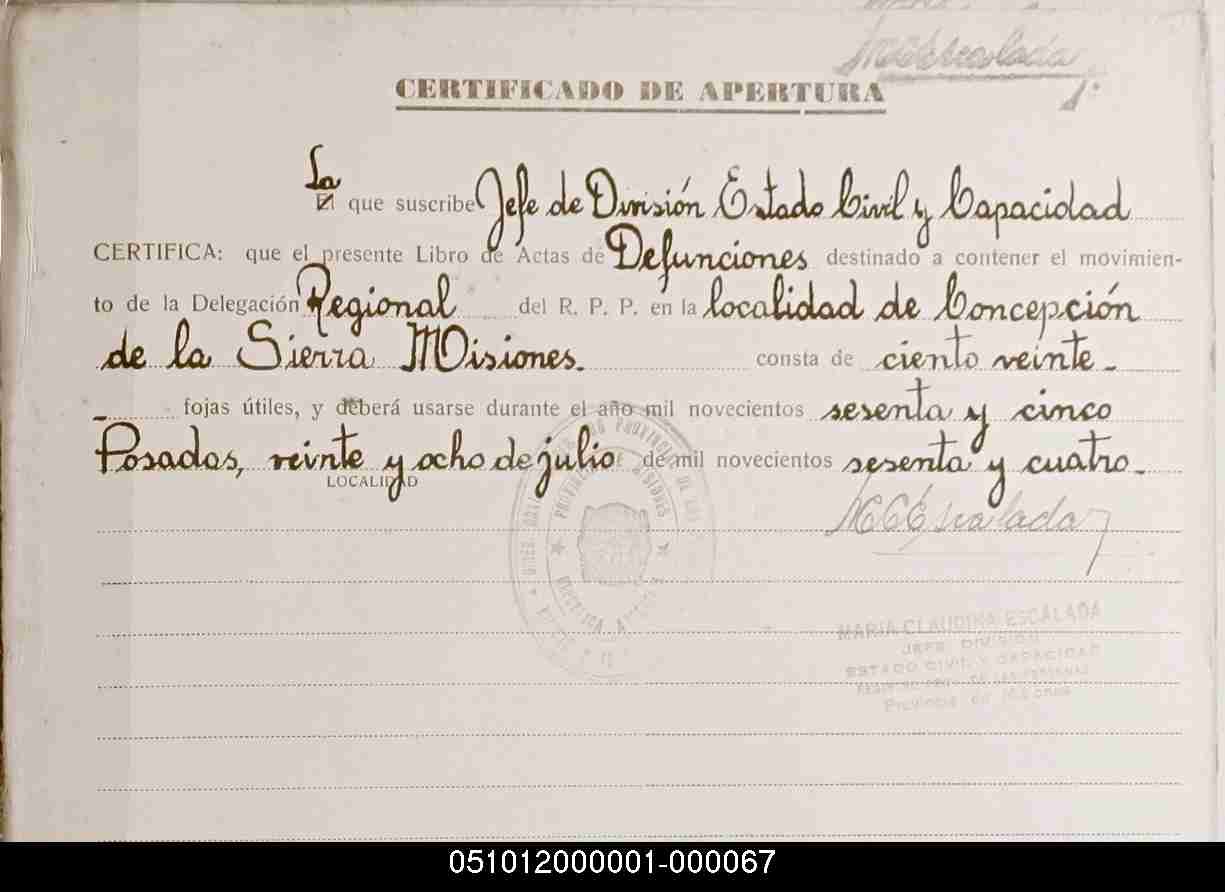 MCEscalada
1º
CERTIFICADO DE APERTURA
La
El que suscribe Jefe de División Estado Civil y Capacidad
CERTIFICA: que el presente Libro de Actas de Defunciones destinado a contener el movimien-
to de la Delegación Regional del R. P. P. en la localidad de Concepción
de la Sierra Misiones. consta de ciento veinte -
- fojas útiles, y deberá usarse durante el año mil novecientos sesenta y cinco
Posadas, veinte y ocho de julio de mil novecientos sesenta y cuatro.-
LOCALIDAD
MCEscalada
MARIA CLAUDINA ESCALADA
JEFE DIVISION
ESTADO CIVIL Y CAPACIDAD
REGISTRO PROV. DE LAS PERSONAS
Provincia de Misiones
051012000001-000067